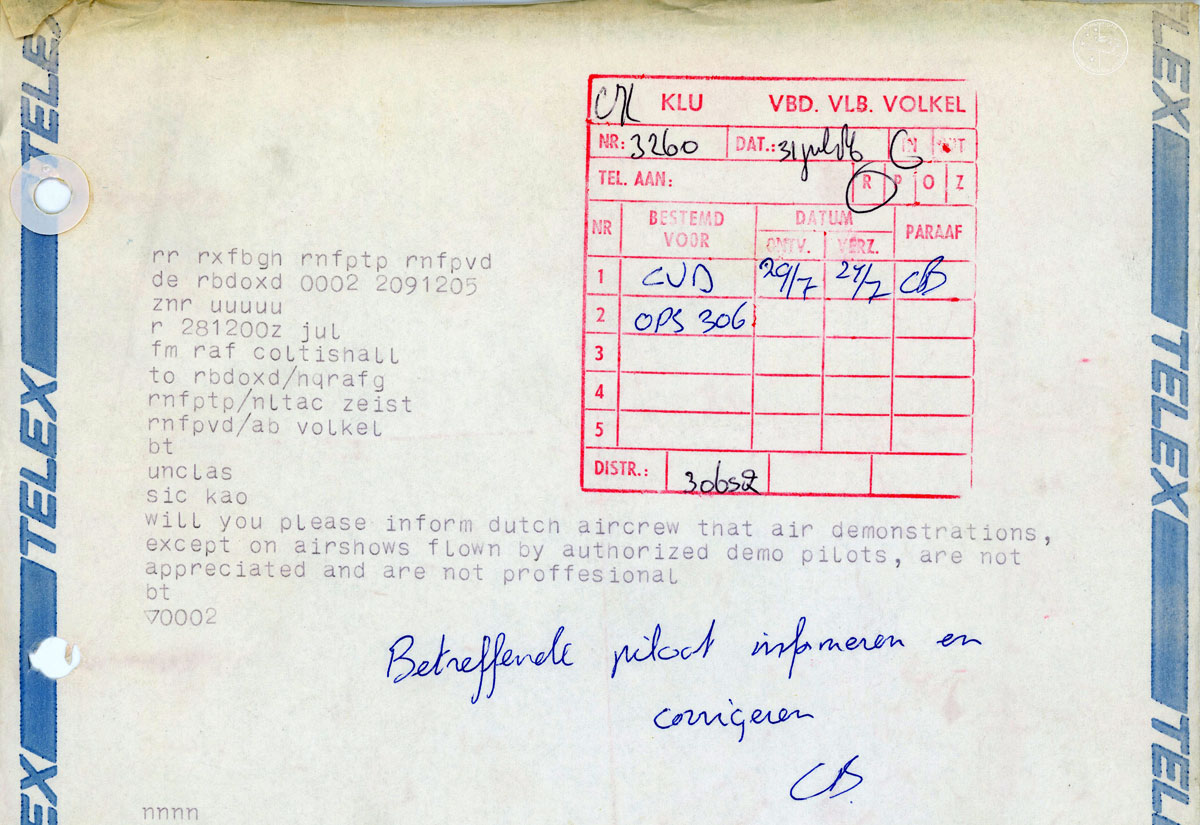 TELEX
TELEX
KLU VBD. VLB. VOLKEL
NR: 3260 DAT.: 31 jul IN UIT
TEL. AAN: R P O Z
NR BESTEMD VOOR DATUM PARAAF
ONTV. VERZ.
1 CVD 29/7 29/7 CB
2 OPS 306
3
4
5
DISTR.: 306sq
rr rxfbgh rnfptp rnfpvd
de rbdoxd 0002 2091205
znr uuuuu
r 281200z jul
fm raf coltishall
to rbdoxd/hqrafg
rnfptp/nltac zeist
rnfpvd/ab volkel
bt
unclas
sic kao
will you please inform dutch aircrew that air demonstrations,
except on airshows flown by authorized demo pilots, are not
appreciated and are not proffesional
bt
▽0002
Betreffende piloot informeren en
corrigeren
CB.
nnnn
TELEX
TELEX